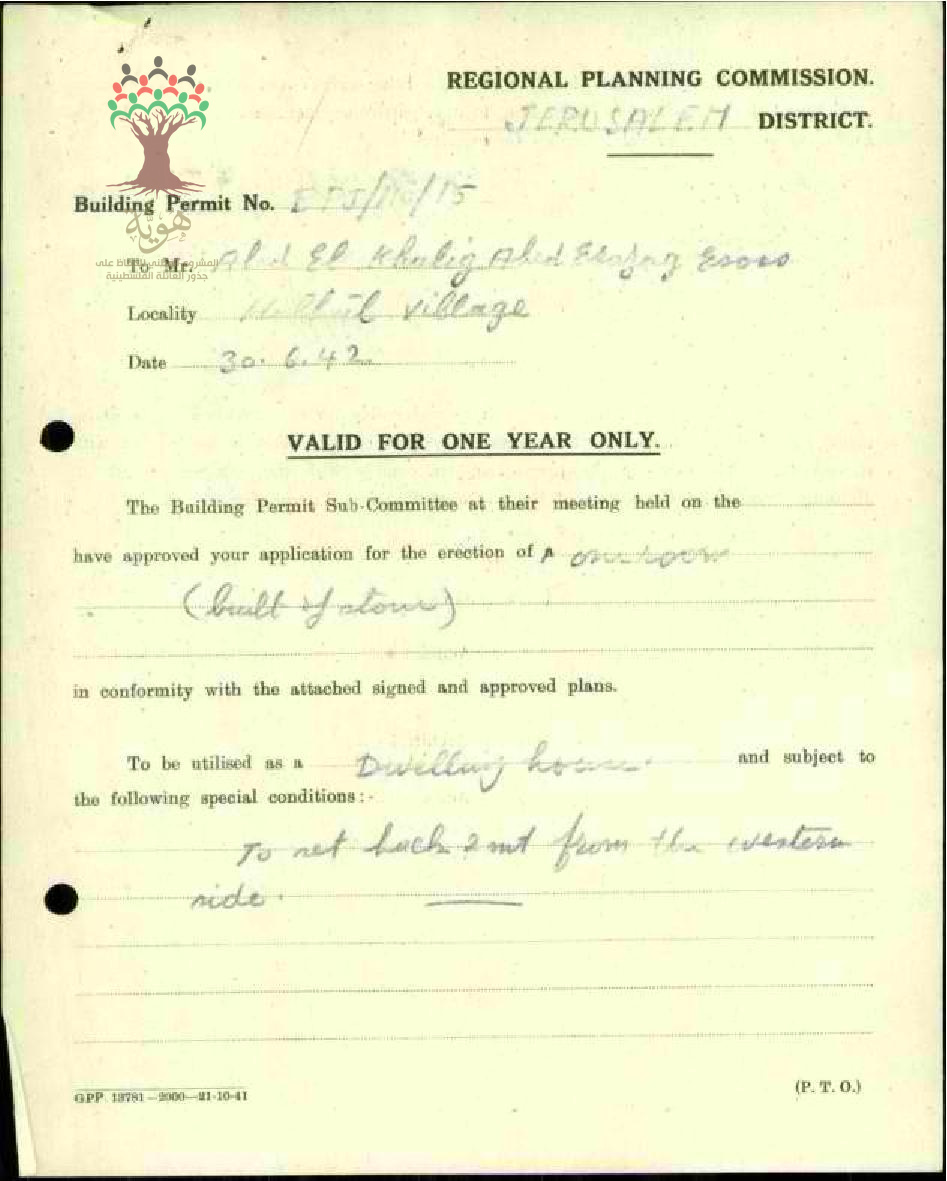 REGIONAL PLANNING COMMISSION.
JERUSALEM DISTRICT.
Building Permit No. /15
هوية
To Mr. Abed El Khaliq Abed
المشروع الوطني للحفاظ على
جذور العائلة الفلسطينية
Locality Halhul village
Date 30.6.42
VALID FOR ONE YEAR ONLY.
The Building Permit Sub-Committee at their meeting held on the
have approved your application for the erection of a one room
(built of stone)
in conformity with the attached signed and approved plans.
To be utilised as a Dwelling house. and subject to
the following special conditions:-
To set back 2 mt from the western
side.
GPP. 13781—2000—21-10-41
(P. T. O.)